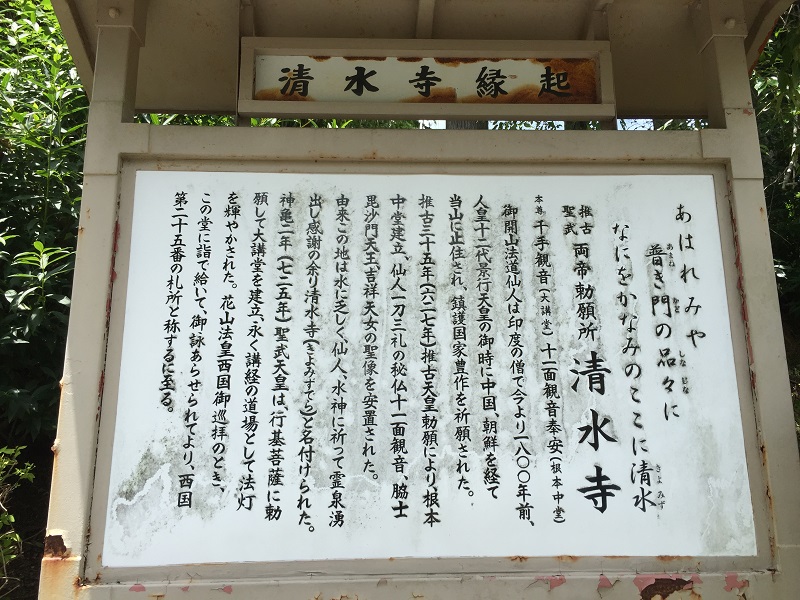 清水寺縁起
あはれみや
普き門の品々に
あまね かど しなじな
なにをかなみのここに清水
きよみず
推古
聖武
両帝勅願所 清水寺
本尊 千手観音(大講堂)十一面観音奉安(根本中堂)
御開山法道仙人は印度の僧で今より一八〇〇年前、
人皇十二代景行天皇の御時に中国、朝鮮を経て
当山に止住され、鎮護国家豊作を祈願された。
推古三十五年(六二七年)推古天皇勅願により根本
中堂建立、仙人一刀三礼の秘仏十一面観音、脇士
毘沙門天王、吉祥天女の聖像を安置された。
由来この地は水に乏しく仙人、水神に祈って霊泉湧
出し感謝の余り清水寺(きよみずでら)と名付けられた。
神亀二年(七二五年)聖武天皇は、行基菩薩に勅
願して大講堂を建立、永く講経の道場として法灯
を輝やかされた。花山法皇西国御巡拝のとき、
この堂に詣で給いて、御詠あらせられてより、西国
第二十五番の札所と称するに至る。